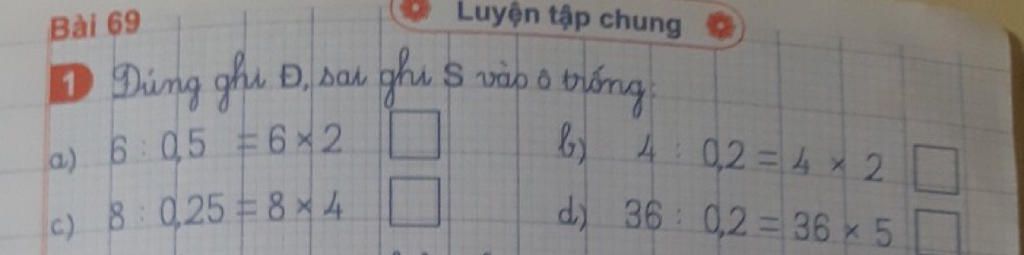 Bài 69
Luyện tập chung
1 Đúng ghi Đ, sai ghi S vào ô trống:
a) 6 : 0,5 = 6 × 2
b) 4 : 0,2 = 4 × 2
c) 8 : 0,25 = 8 × 4
d) 36 : 0,2 = 36 × 5